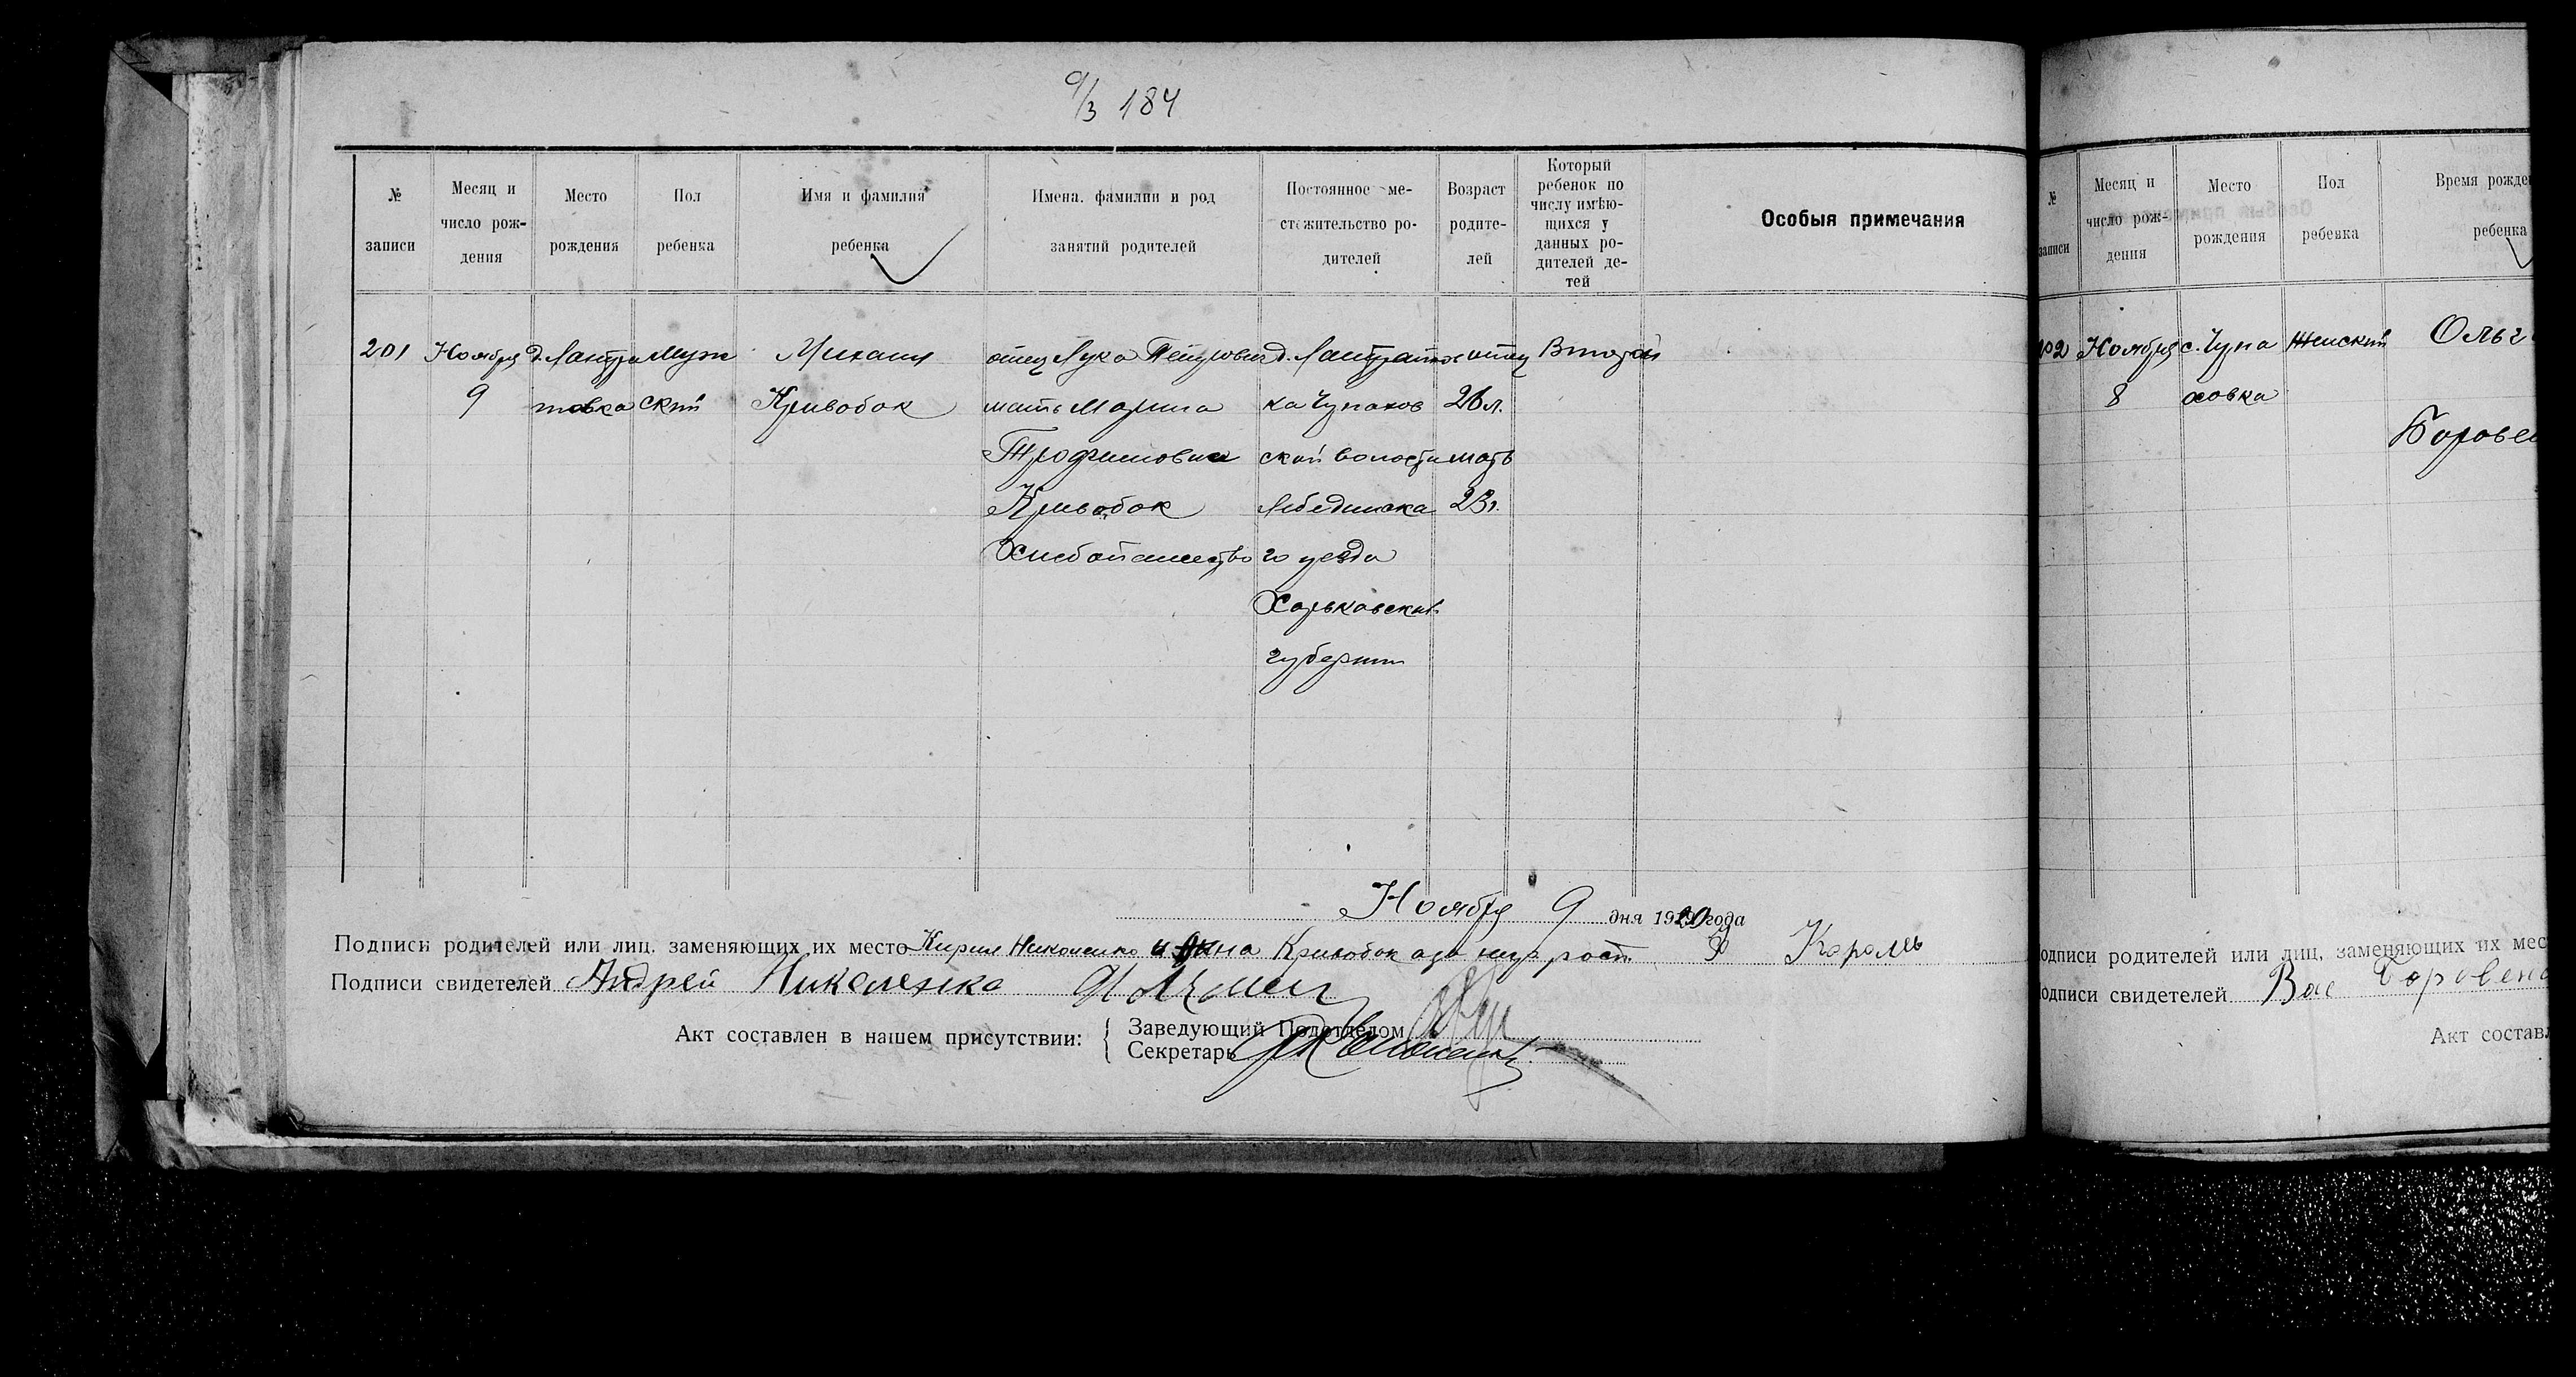 9/3 184
№ записи
Месяц и число рождения
Место рождения
Пол ребенка
Имя и фамилия ребенка
Имена. фамилии и род занятий родителей
Постоянное местожительство родителей
Возраст родителей
Который ребенок по числу имѣющихся у данных родителей детей
Особыя примечания
201 Ноября д. Лантра Муж Михаил отец Лука Петрович д. Лантратов отец Второй
9 товка ский Кривобок мать Марина ка Чупахов 26 л.
Трофимовна ской волости мать
Кривобок Лебединска 23 л.
Хлебопашество го уезда
Харьковской
губернии
Ноября 9 дня 1920 года
Подписи родителей или лиц. заменяющих их место Кирил Николенко и Анна Кривобок
Король
Подписи свидетелей Андрей Николенко
Акт составлен в нашем присутствии:
Заведующий Подотделом
Секретарь
№ записи
Месяц и число рождения
Место рождения
Пол ребенка
Время рожде
ребенка
202 Ноября с. Чупа Женский Ольг
8 ховка
Боровен
одписи родителей или лиц, заменяющих их мес
одписи свидетелей Вас Боровен
Акт составл